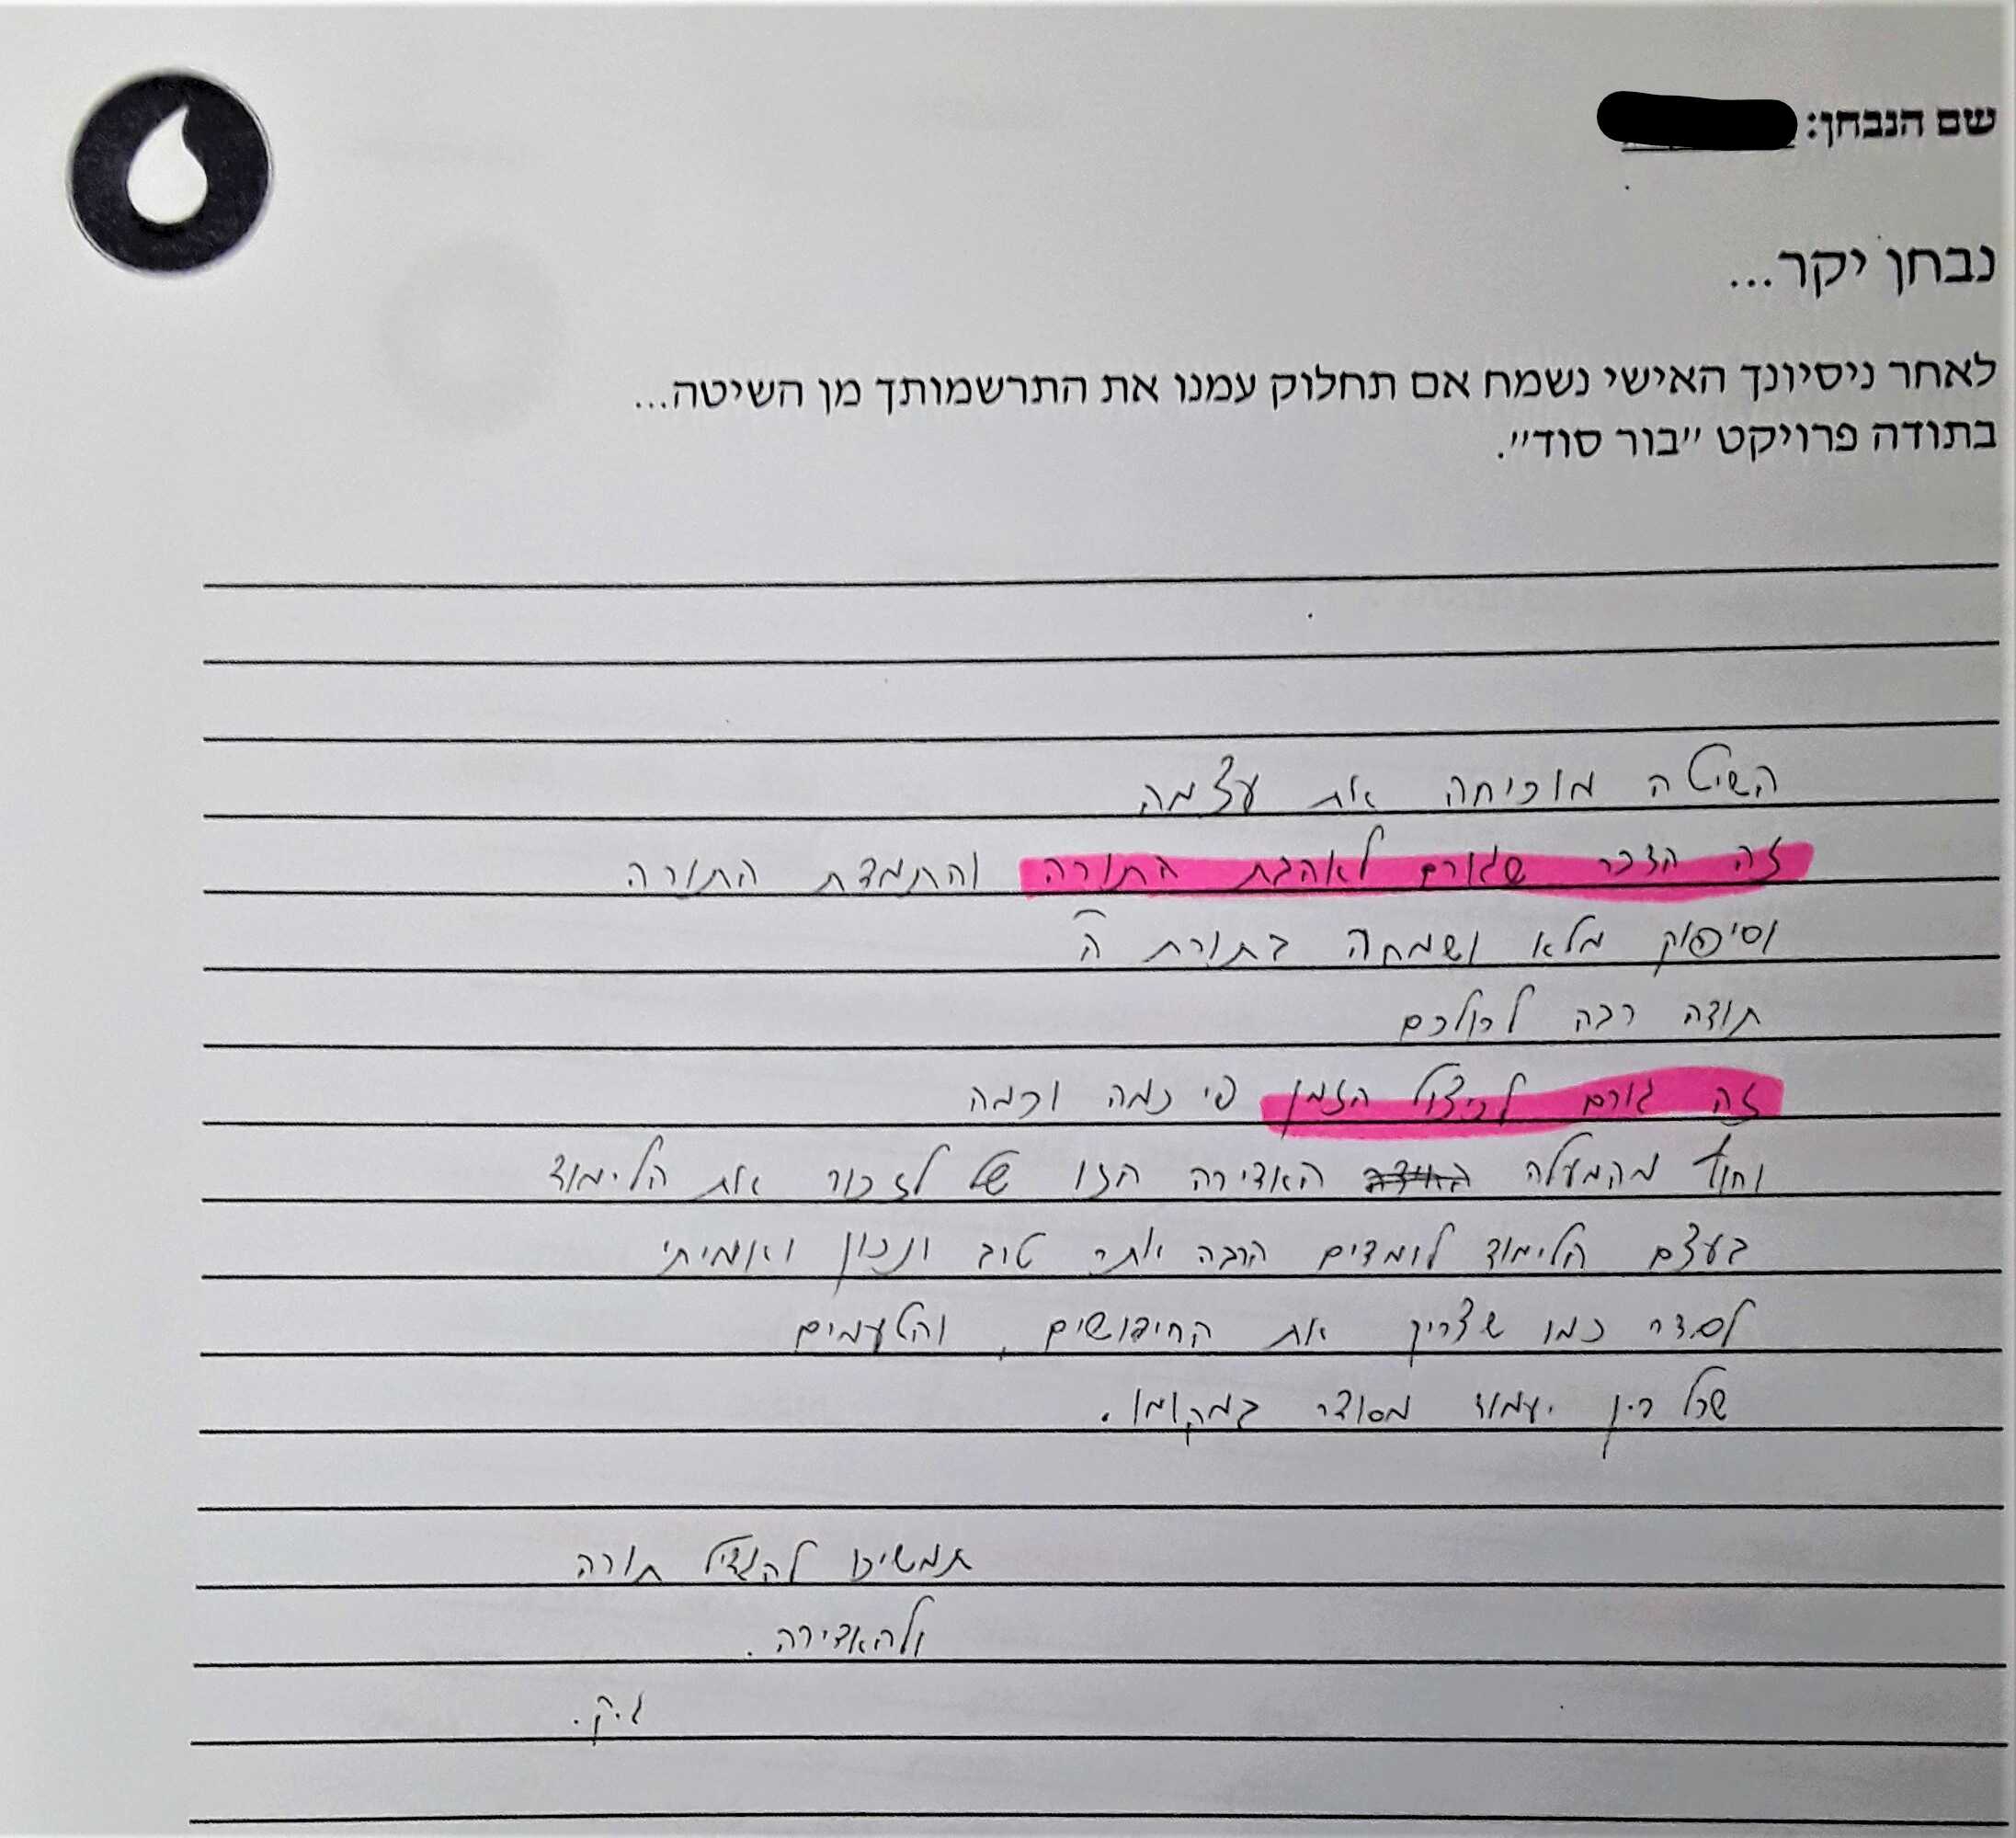 שם הנבחן:
נבחן יקר...
לאחר ניסיונך האישי נשמח אם תחלוק עמנו את התרשמותך מן השיטה...
בתודה פרויקט "בור סוד".
השיטה מוכיחה את עצמה
זה הדבר שגורם לאהבת התורה והתמדת התורה
וסיפוק מלא ושמחה בתורת ה'
תודה רבה לכולכם
זה גורם לניצול הזמן פי כמה וכמה
וחוץ מהמעלה האדירה הזו של לזכור את הלימוד
בעצם הלימוד לומדים הרבה יותר טוב ונכון ואמיתי
לסדר כמו שצריך את החיפושים, והטעמים
שכל דין יעמוד מסודר במקומו.
תמשיכו להגדיל תורה
ולהאדירה.
ג.ק.